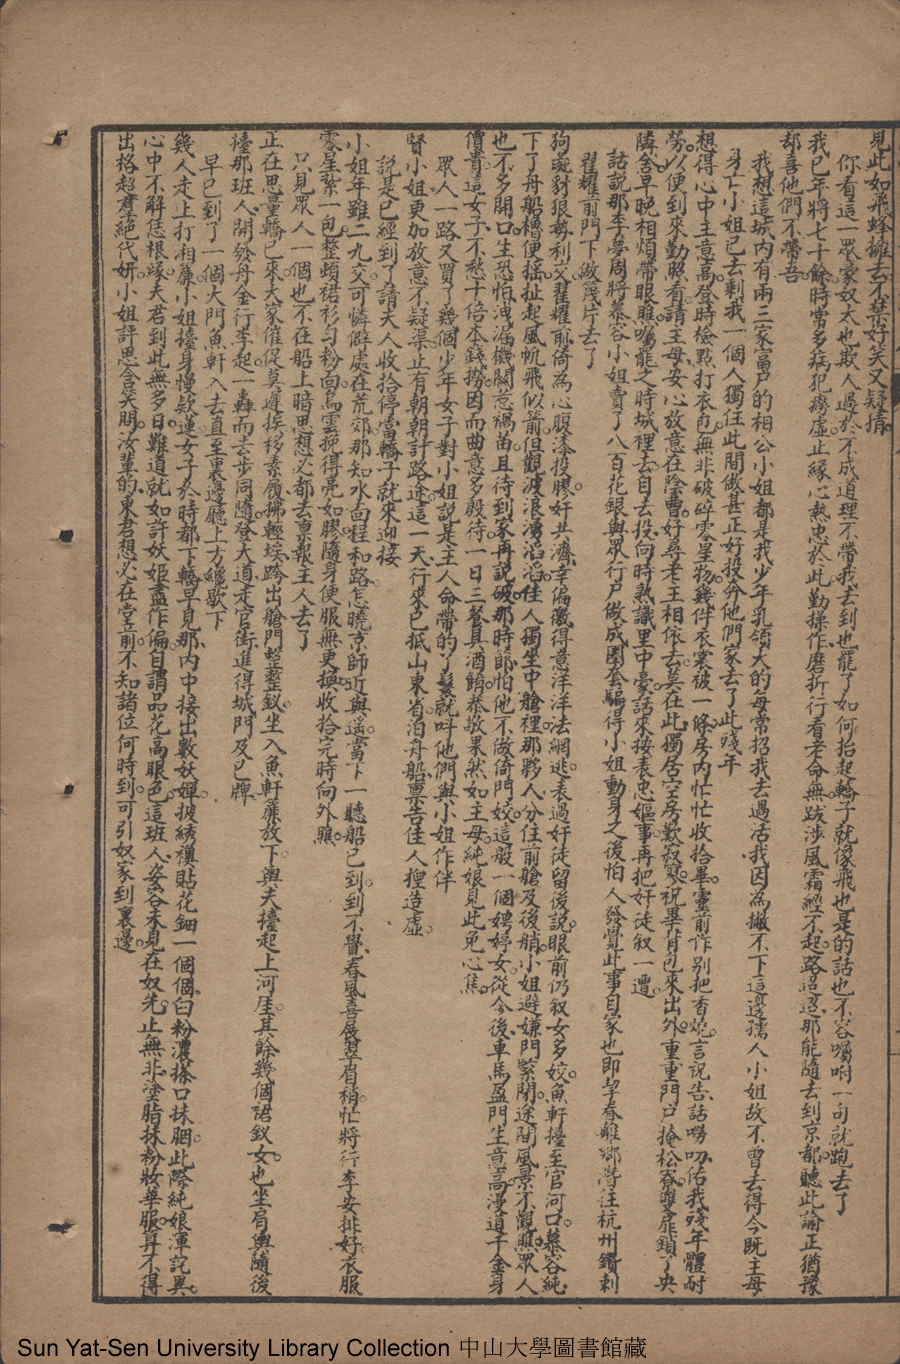 見此如飛蜂擁去不禁好笑又疑猜
你看這一眾豪奴太也欺人過於不成道理不帶我去到也罷了如何抬起轎子就像飛也是的話也不容囑咐一句就跑去了
我已年將七十餘時常多病犯痨虛止緣心熱忠於此勤操作磨折行看老命無跋涉風霜經不起路迢迢那能隨去到京都聽此諭正猶豫
却喜他們不帶吾
我想這城內有兩三家富戶的相公小姐都是我少年乳領大的每常招我去過活我因為撇不下這邊孺人小姐故不曾去得今既主母
身亡小姐已去剩我一個人獨在此間做甚正好投奔他們家去了此殘年
想得心中主意高登時檢點打衣包無非破碎零星物幾件衣裳被一條房內忙忙收拾畢靈前作別把香燒言說告話嘮叨佑我殘年體耐
勞以便到來勤照看請主母安心放意在陰曹好尋老王相依去莫在此獨居空房歎寂寥祝畢背包來出外重重門戶掩松寮雙扉鎖了央
隣舍早晚相煩帶眼瞧囑罷之時城裡去自去投向時熟識里中豪話來按表忠嫗事再把奸徒叙一遭
話說那李夢周將慕容小姐賣了八百花銀與眾行戶做成圈套騙得小姐動身之後怕人發覺此事自家也即挈眷離鄉潛往杭州鑽刺
翟耀前門下做篾片去了
狗彘豺狼勢利交翟耀前倚為心腹漆投膠奸共濟幸偏徼得意洋洋法網逃表過奸徒留後說眼前仍叙女多姣魚軒擡至官河口慕容純
下了舟船櫓便搖扯起風帆飛似箭但觀波浪湧滔滔佳人獨坐中艙裡那夥人分住前艙及後艄小姐避嫌門緊閉途間風景不觀瞧眾人
也不多開口生恐怕洩漏機關惹禍苗且待到家再說破那時即怕他不做倚門姣這般一個娉婷女從今後車馬盈門生意高漫道千金身
價貴這女子不愁十倍本錢撈因而曲意多殷待一日三餐具酒餚恭敬果然如主母純娘見此免心焦
眾人一路又買了幾個少年女子對小姐說是主人命帶的丫鬟就叫他們與小姐作伴
賢小姐更加放意不疑渠止有朝朝計路途這一天行來已抵山東省泊舟船禀告佳人捏造虛
說是已經到了請夫人收拾停當轎子就來迎接
小姐年雖二九交可憐僻處在荒郊那知水面程和路怎曉京師近與遥當下一聽船已到到不覺春風喜展翠眉稍忙將行李安排好衣服
零星紮一包整頓裙衫勻粉面烏雲挽得亮如膠隨身便服無更換收拾完時向外瞧
只見眾人一個也不在船上暗思想必都去禀報王人去了
正在思量轎已來夫家催促莫遲挨移素履拂輕埃跨出艙門整整釵坐入魚軒簾放下輿夫擡起上河厓其餘幾個裙釵女也坐肩輿隨後
檯那班人開發舟金行李起一轟而去步同隨登大道走官街進得城門及已牌
早已到了一個大門魚軒入去直至裏邊廳上方纔歇下
幾人走上打相簾小姐擡身慢欵蓮女子於時都下轎早見那內中接出數妖嬋披綉襖貼花鈿一個個白粉濃搽口抹胭此際純娘渾詫異
心中不解恁根緣夫君到此無多日難道就如許妖姬盡作偏自謂品花高眼色這班人姿容未見在奴先止無非塗脂抹粉妝華服算不得
出格超羣絕代妍小姐評思含笑問汝輩的東君想必在堂前不知諸位何時到可引奴家到裏邊
Sun Yat-Sen University Library Collection 中山大學圖書館藏